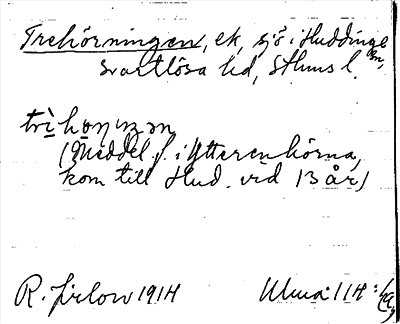 Trehörningen, ek, sjö i Huddinge
sn,
Svartlösa hd, Sthms l.
trìhọṇıŋən
(Meddel. f. i Ytterenhörna,
kom till Hud. vid 13 år)
R. Jirlow 1914
Ulma: 114: